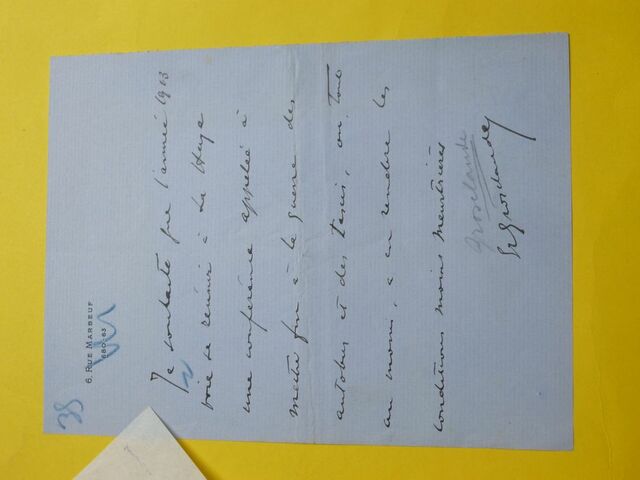 38
6, RUE MARBEUF
680-63
Je souhaite que l'année 1913
voie se réunir à La Haye
une conférence appelée à
mettre fin à la guerre des
autobus et des taxis, ou, tout
au moins, à en rendre les
conditions moins meurtrières
Grosclaude
Grosclaude